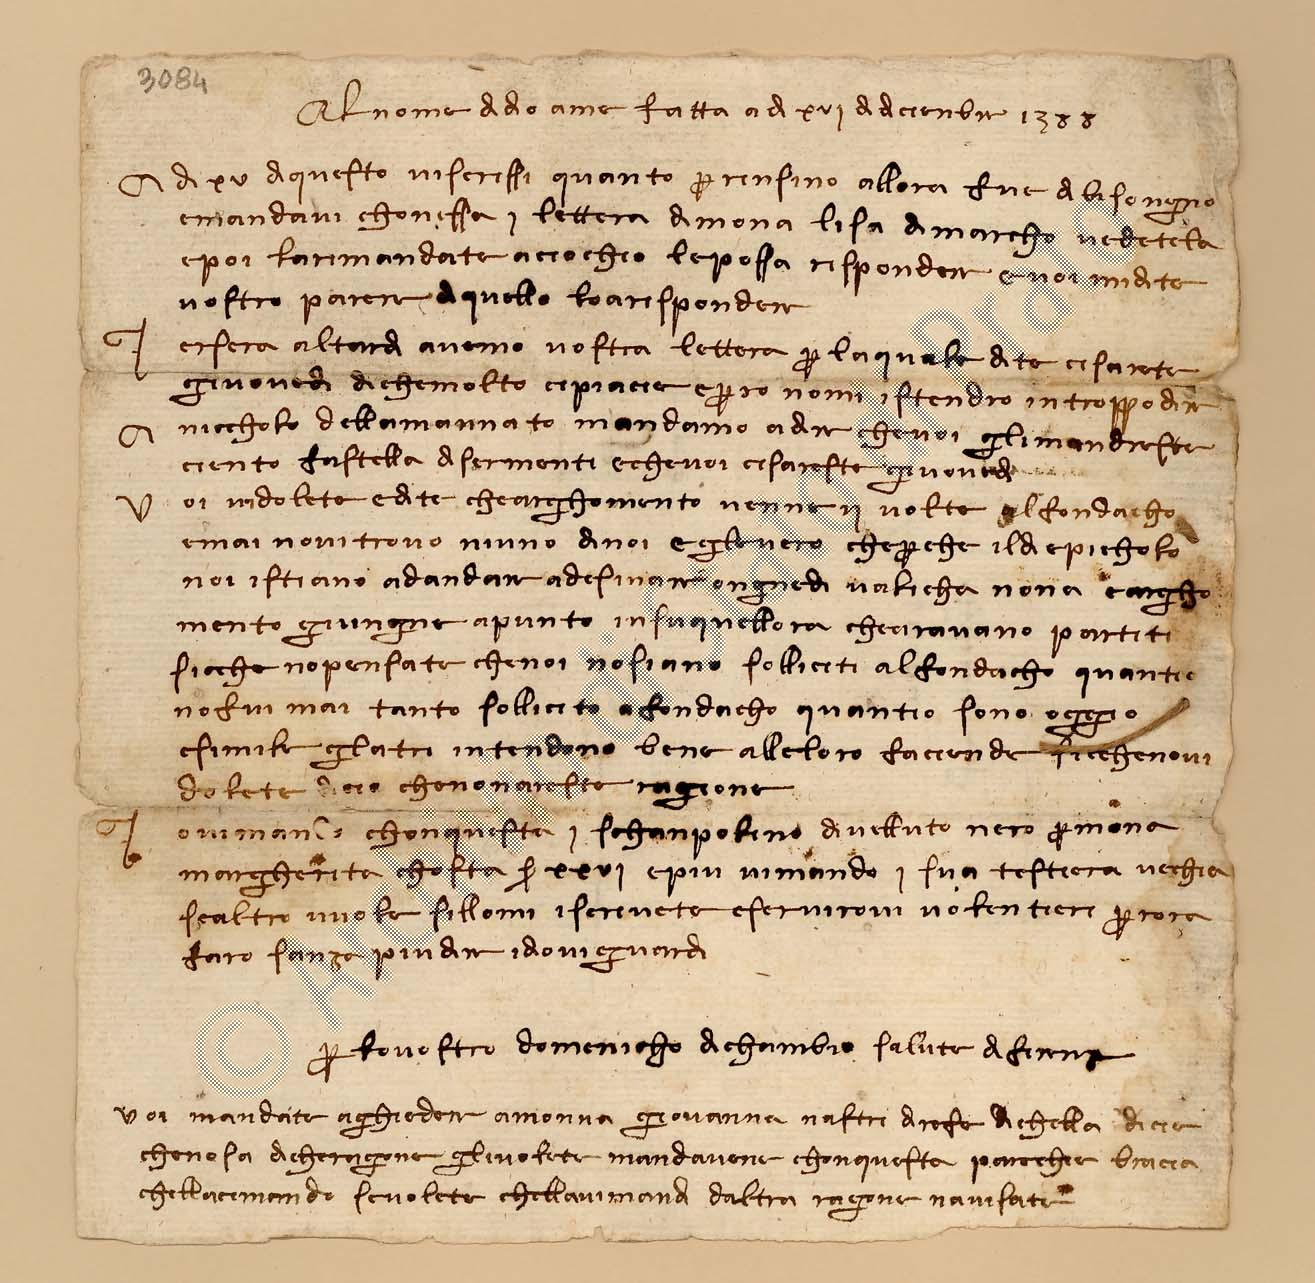 3084
Al nome di dio ame fatta a di xvi di dicienbre 1388
A di xv di questo vi scrissi quanto per ensino allora fue di bisongnio
e manda vi chon essa j lettera di mona lisa di marcho vedetela
e poi la rimandate accio chio le possa rispondere e voi mi dite
vostro parere di quello l o a rispondere
I ersera al tardi avemo vostra lettera per la quale dite ci sarete
giovedi di che molto ci piacie e pero no mi istendro in troppo dire
A niccholo dell amannato mandamo a dire che voi gli mandreste
ciento fastella di sermenti e che voi ci sareste giovedi
V oi vi dolete e dite che arghomento venne ij volte al fondacho
e mai no vi trovo niuno di noi e gl e vero che perche il di e picholo
noi istiano ad andare a desinare ongne di valicha nona e argho
mento giungne apunto in su quell ora che saravano partiti
sicche no pensate che noi no siano solliciti al fondacho quantio
no fui mai tanto sollicito a fondacho quantio sono oggio
e simile gl atri intendono bene alle loro faciende sicche no vi
dolete di cio che non areste ragione
I o vi mando chon questa j schanpolino di velluto nero per mona
margherita chosta s xxvi e piu vi mando j sua testiera vechia
s e altro vuole sillo mi iscrivete e servirovi volentieri per ora
faro sanza piu dire idio vi guardi
per lo vostro domenicho di chambio salute di firenze
voi mandate a chiedere a monna giovanna nastri di refe di ch ella dicie
che no sa di che ragione gli volete mandavene chon questa parechie bracia
ch ella ci mando se volete ch ella vi mandi d altra ragone n avisate